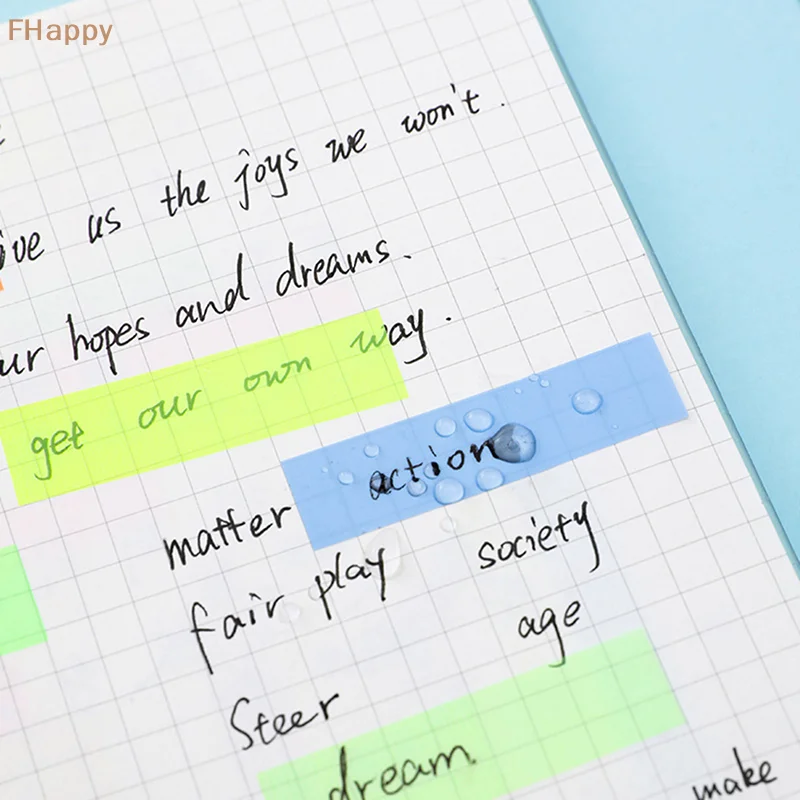 FHappy
us the joys we won't.
hopes and dreams.
get our own way.
matter action
fair play society
age
Steer
dream.
make